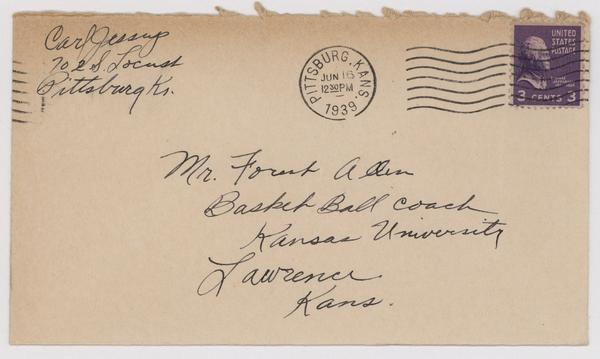 Carl Jessup
702 S. Locust
Pittsburg Ks.
PITTSBURG, KANS.
JUN 16
12 30 PM
1939
UNITED
STATES
POSTAGE
3 CENTS 3
Mr. Forest Allen
Basket Ball coach
Kansas University
Lawrence
Kans.